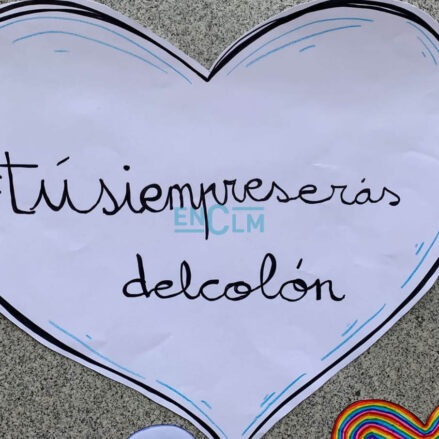 #túsiempreserás
ENCLM
delcolón